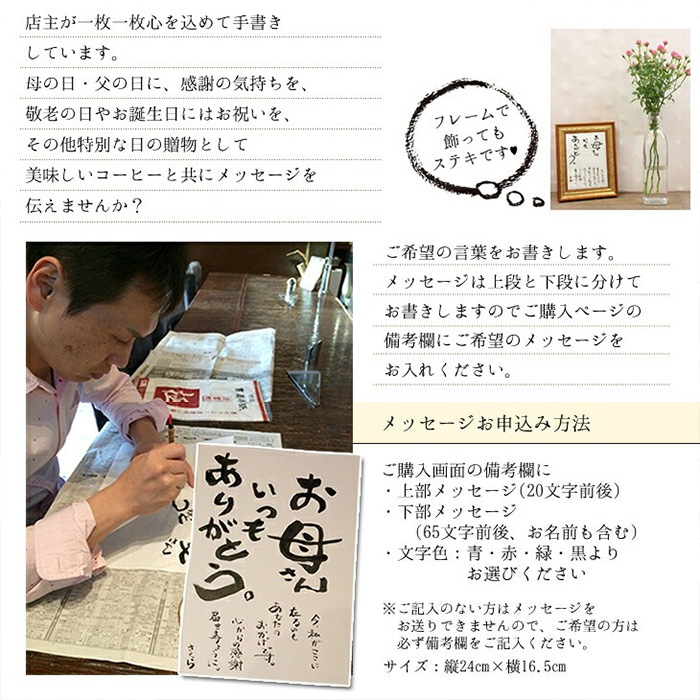 店主が一枚一枚心を込めて手書き
しています。
母の日・父の日に、感謝の気持ちを、
敬老の日やお誕生日にはお祝いを、
その他特別な日の贈物として
美味しいコーヒーと共にメッセージを
伝えませんか？
フレームで
飾っても
ステキです♥
お母さん
いつも
ありがとう。
ご希望の言葉をお書きします。
メッセージは上段と下段に分けて
お書きしますのでご購入ページの
備考欄にご希望のメッセージを
お入れください。
メッセージお申込み方法
ご購入画面の備考欄に
・上部メッセージ(20文字前後)
・下部メッセージ
(65文字前後、お名前も含む)
・文字色：青・赤・緑・黒より
お選びください
※ご記入のない方はメッセージを
お送りできませんので、ご希望の方は
必ず備考欄をご記入ください。
サイズ：縦24cm×横16.5cm
お母さん
いつも
ありがとう。
今、私がここに
在るのも
あなたの
おかげです。
心からの感謝
届きますように。
さくら